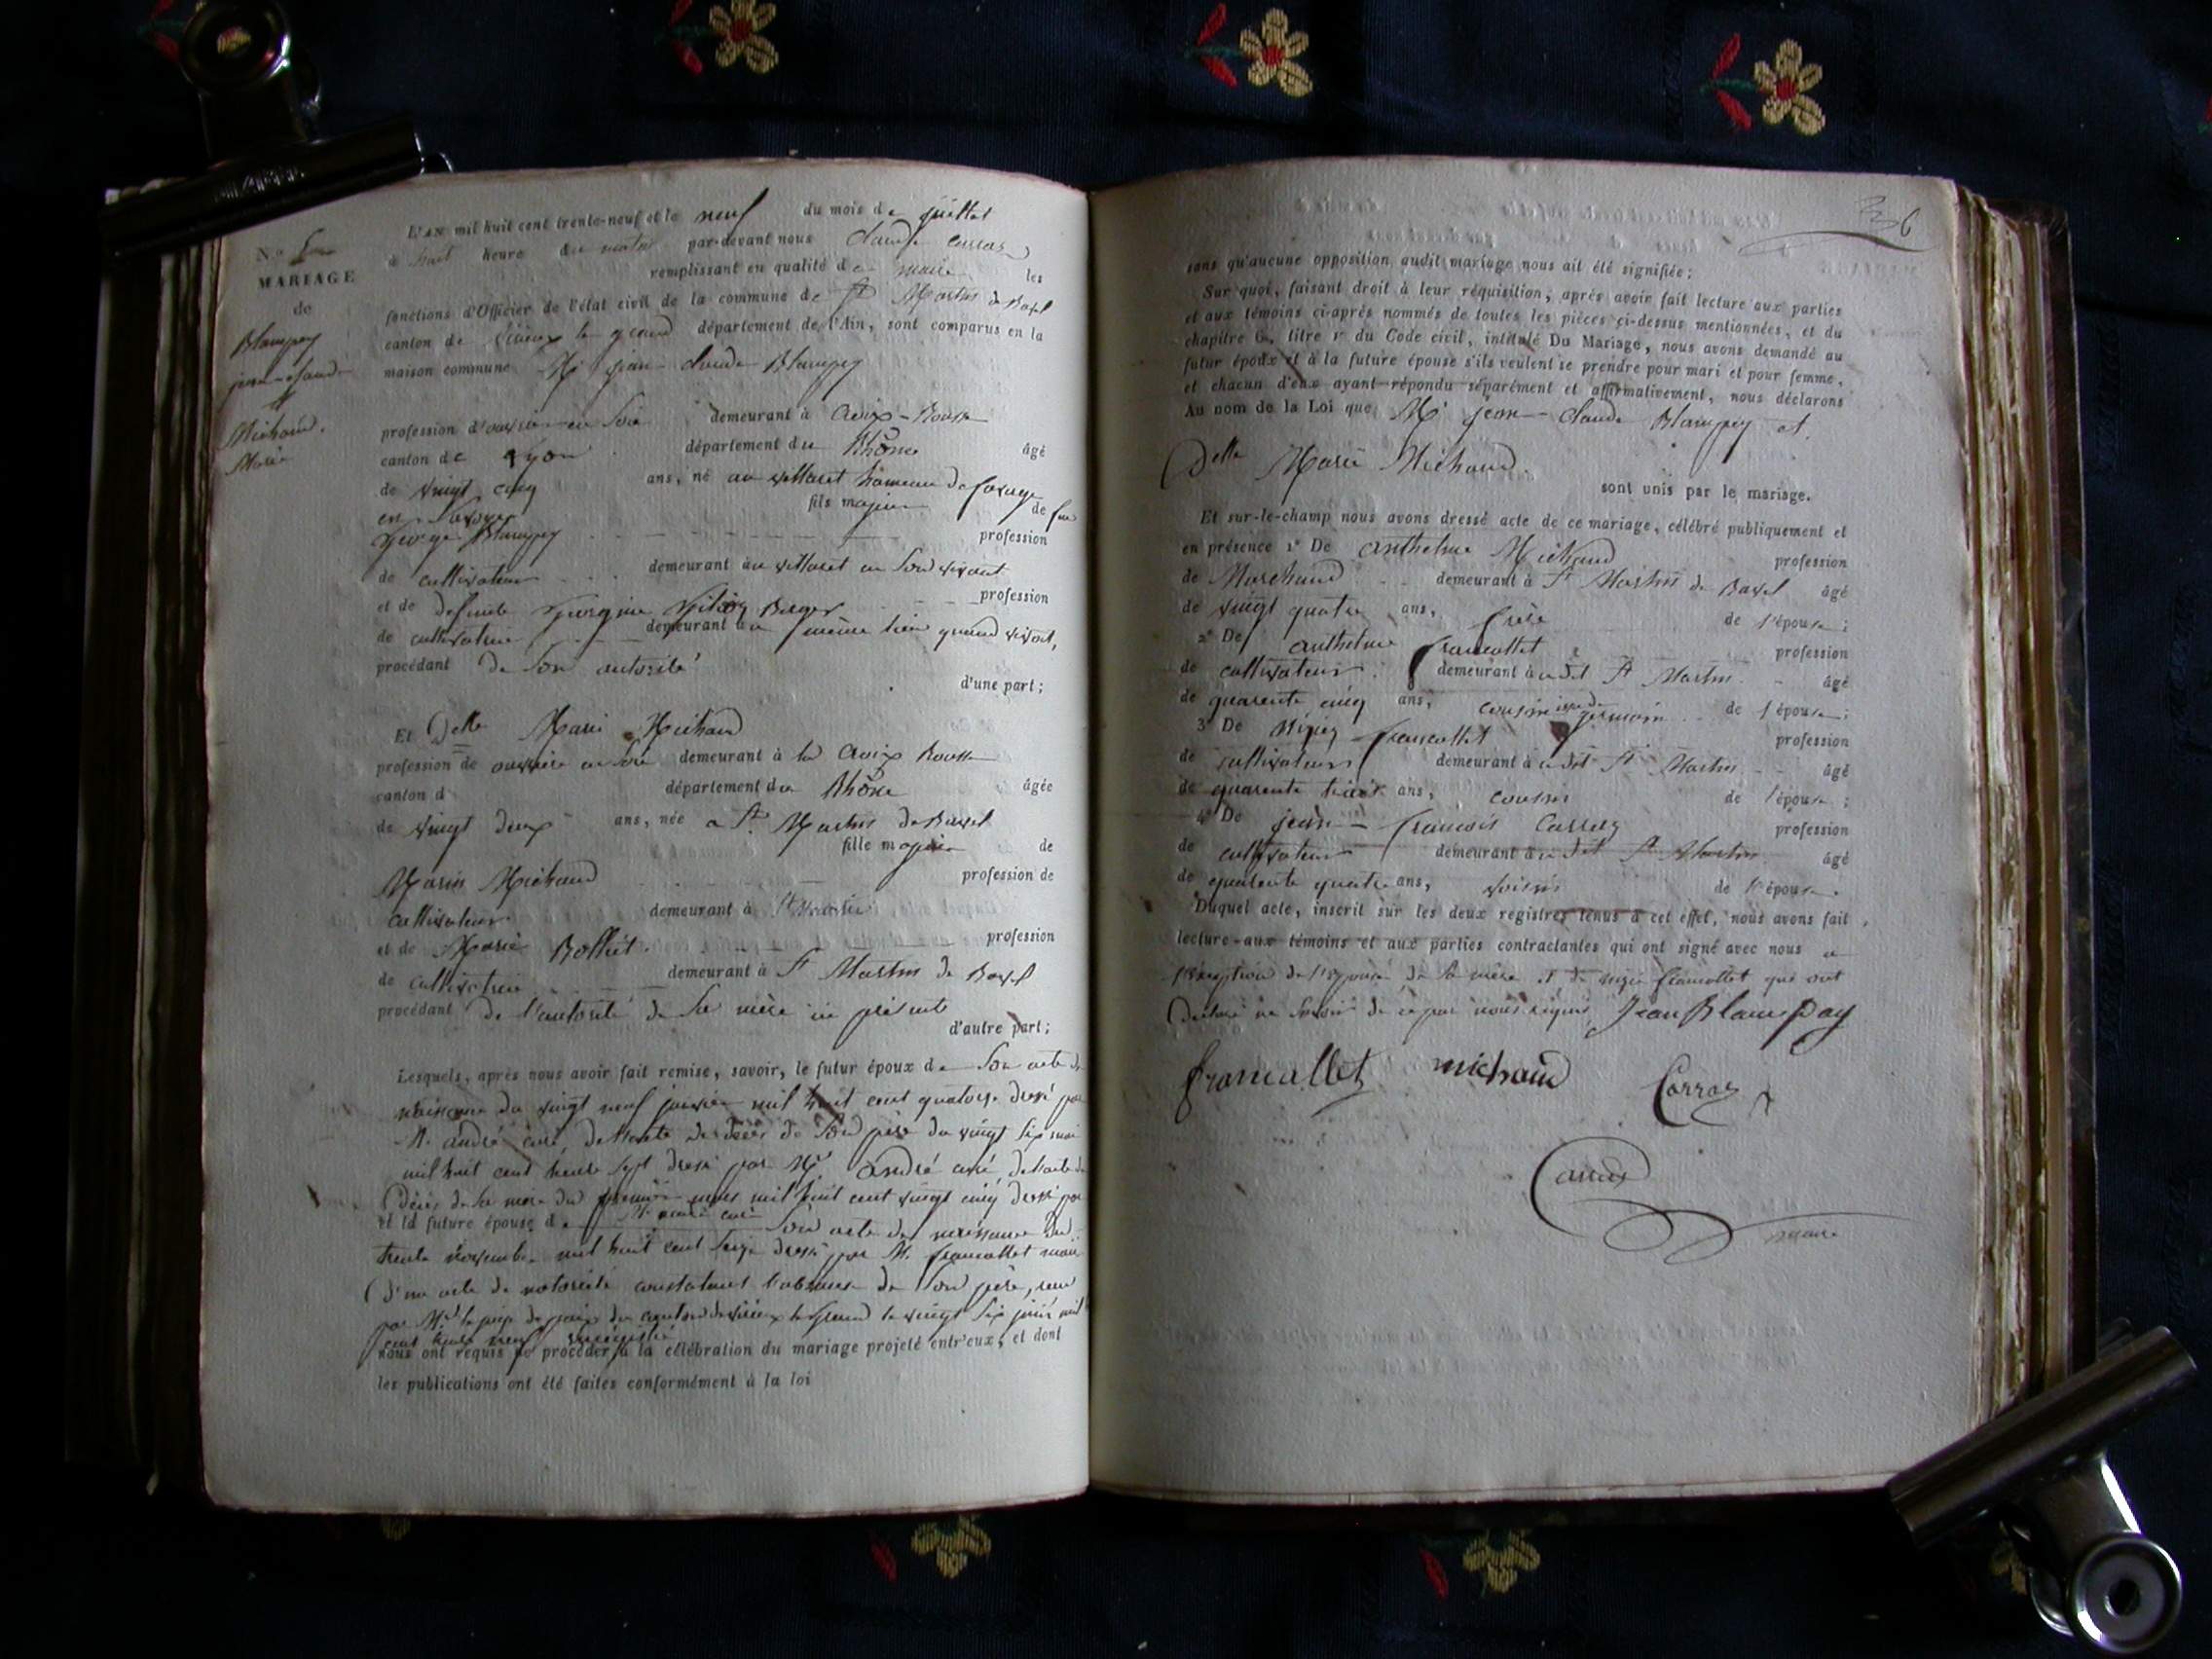 L'an mil huit cent trente-neuf et le neuf du mois de juillet
à huit heure du matin par-devant nous Claude Carraz
remplissant en qualité de maire les
fonctions d'Officier de l'état civil de la commune de St Martin de Bavel
canton de Virieux le grand département de l'Ain, sont comparus en la
maison commune Mr jean-claude Blampey
N.o
MARIAGE
de
Blampey
jean-claude
et
Michaud.
Marie
profession d'ouvrier en soie demeurant à Croix-Rousse
canton de Lyon département du Rhône âgé
de vingt cinq ans, né au villaret hameau de
en Savoye fils majeur de feu
George Blampey profession
de cultivateur demeurant au villaret en son vivant
et de defunte Georgine Berger profession
de cultivatrice demeurant au même lieu quand vivait,
procédant de son autorité
d'une part;
Et Delle Marie Michaud
profession de ouvrière en soie demeurant à la Croix Rousse
canton d département du Rhône âgée
de vingt deux ans, née à St Martin de Bavel
fille majeure de
Marin Michaud profession de
cultivateur demeurant à St Martin
et de Marie Bolliet profession
de cultivatrice demeurant à St Martin de Bavel
procédant de l'autorité de sa mère ici présente
d'autre part;
Lesquels, après nous avoir fait remise, savoir, le futur époux de son acte de
naissance du vingt neuf janvier mil huit cent quatorze dressé par
M. andré curé, de l'acte de décès de son père du vingt six mai
mil huit cent trente sept dressé par Mr andré curé, de l'acte de
Décès de sa mère du premier mars mil huit cent vingt cinq dressé par
M. andré curé
et la future épouse de son acte de naissance du
trente novembre mil huit cent seize dressé par M. francollet maire
D'un acte de notoriété constatant l'absence de son père, reçu
par Mr le juge de paix du canton de virieux le grand le vingt six juin mil
huit cent trente neuf enregistré
nous ont requis de procéder à la célébration du mariage projeté entr'eux, et dont
les publications ont été faites conformément à la loi
36
sans qu'aucune opposition audit mariage nous ait été signifiée;
Sur quoi, faisant droit à leur réquisition, après avoir fait lecture aux parties
et aux témoins ci-après nommés de toutes les pièces ci-dessus mentionnées, et du
chapitre 6, titre 5 du Code civil, intitulé Du Mariage, nous avons demandé au
futur époux et à la future épouse s'ils veulent se prendre pour mari et pour femme,
et chacun d'eux ayant répondu séparément et affirmativement, nous déclarons
Au nom de la Loi que Mr jean-claude Blampey et
Delle Marie Michaud.
sont unis par le mariage.
Et sur-le-champ nous avons dressé acte de ce mariage, célébré publiquement et
en présence 1o De anthelme Michaud profession
de Marchand demeurant à St Martin de Bavel âgé
de vingt quatre ans, frère de l'épouse;
2o De anthelme francollet profession
de cultivateur demeurant audit St Martin âgé
de quarente cinq ans, cousin issu de germain de l'épouse;
3o De francollet profession
de cultivateur demeurant audit St Martin âgé
de quarente trois ans, cousin de l'épouse;
4o De jean-francois Carraz profession
de cultivateur demeurant audit St Martin âgé
de quarente quatre ans, voisin de l'épouse.
Duquel acte, inscrit sur les deux registres tenus à cet effet, nous avons fait
lecture aux témoins et aux parties contractantes qui ont signé avec nous a
l'exeption de l'epouse de sa mère et de francollet qui ont
Declaré ne savoir de ce par nous requis Jean Blampay
francollet michaud Carraz
Carraz
maire